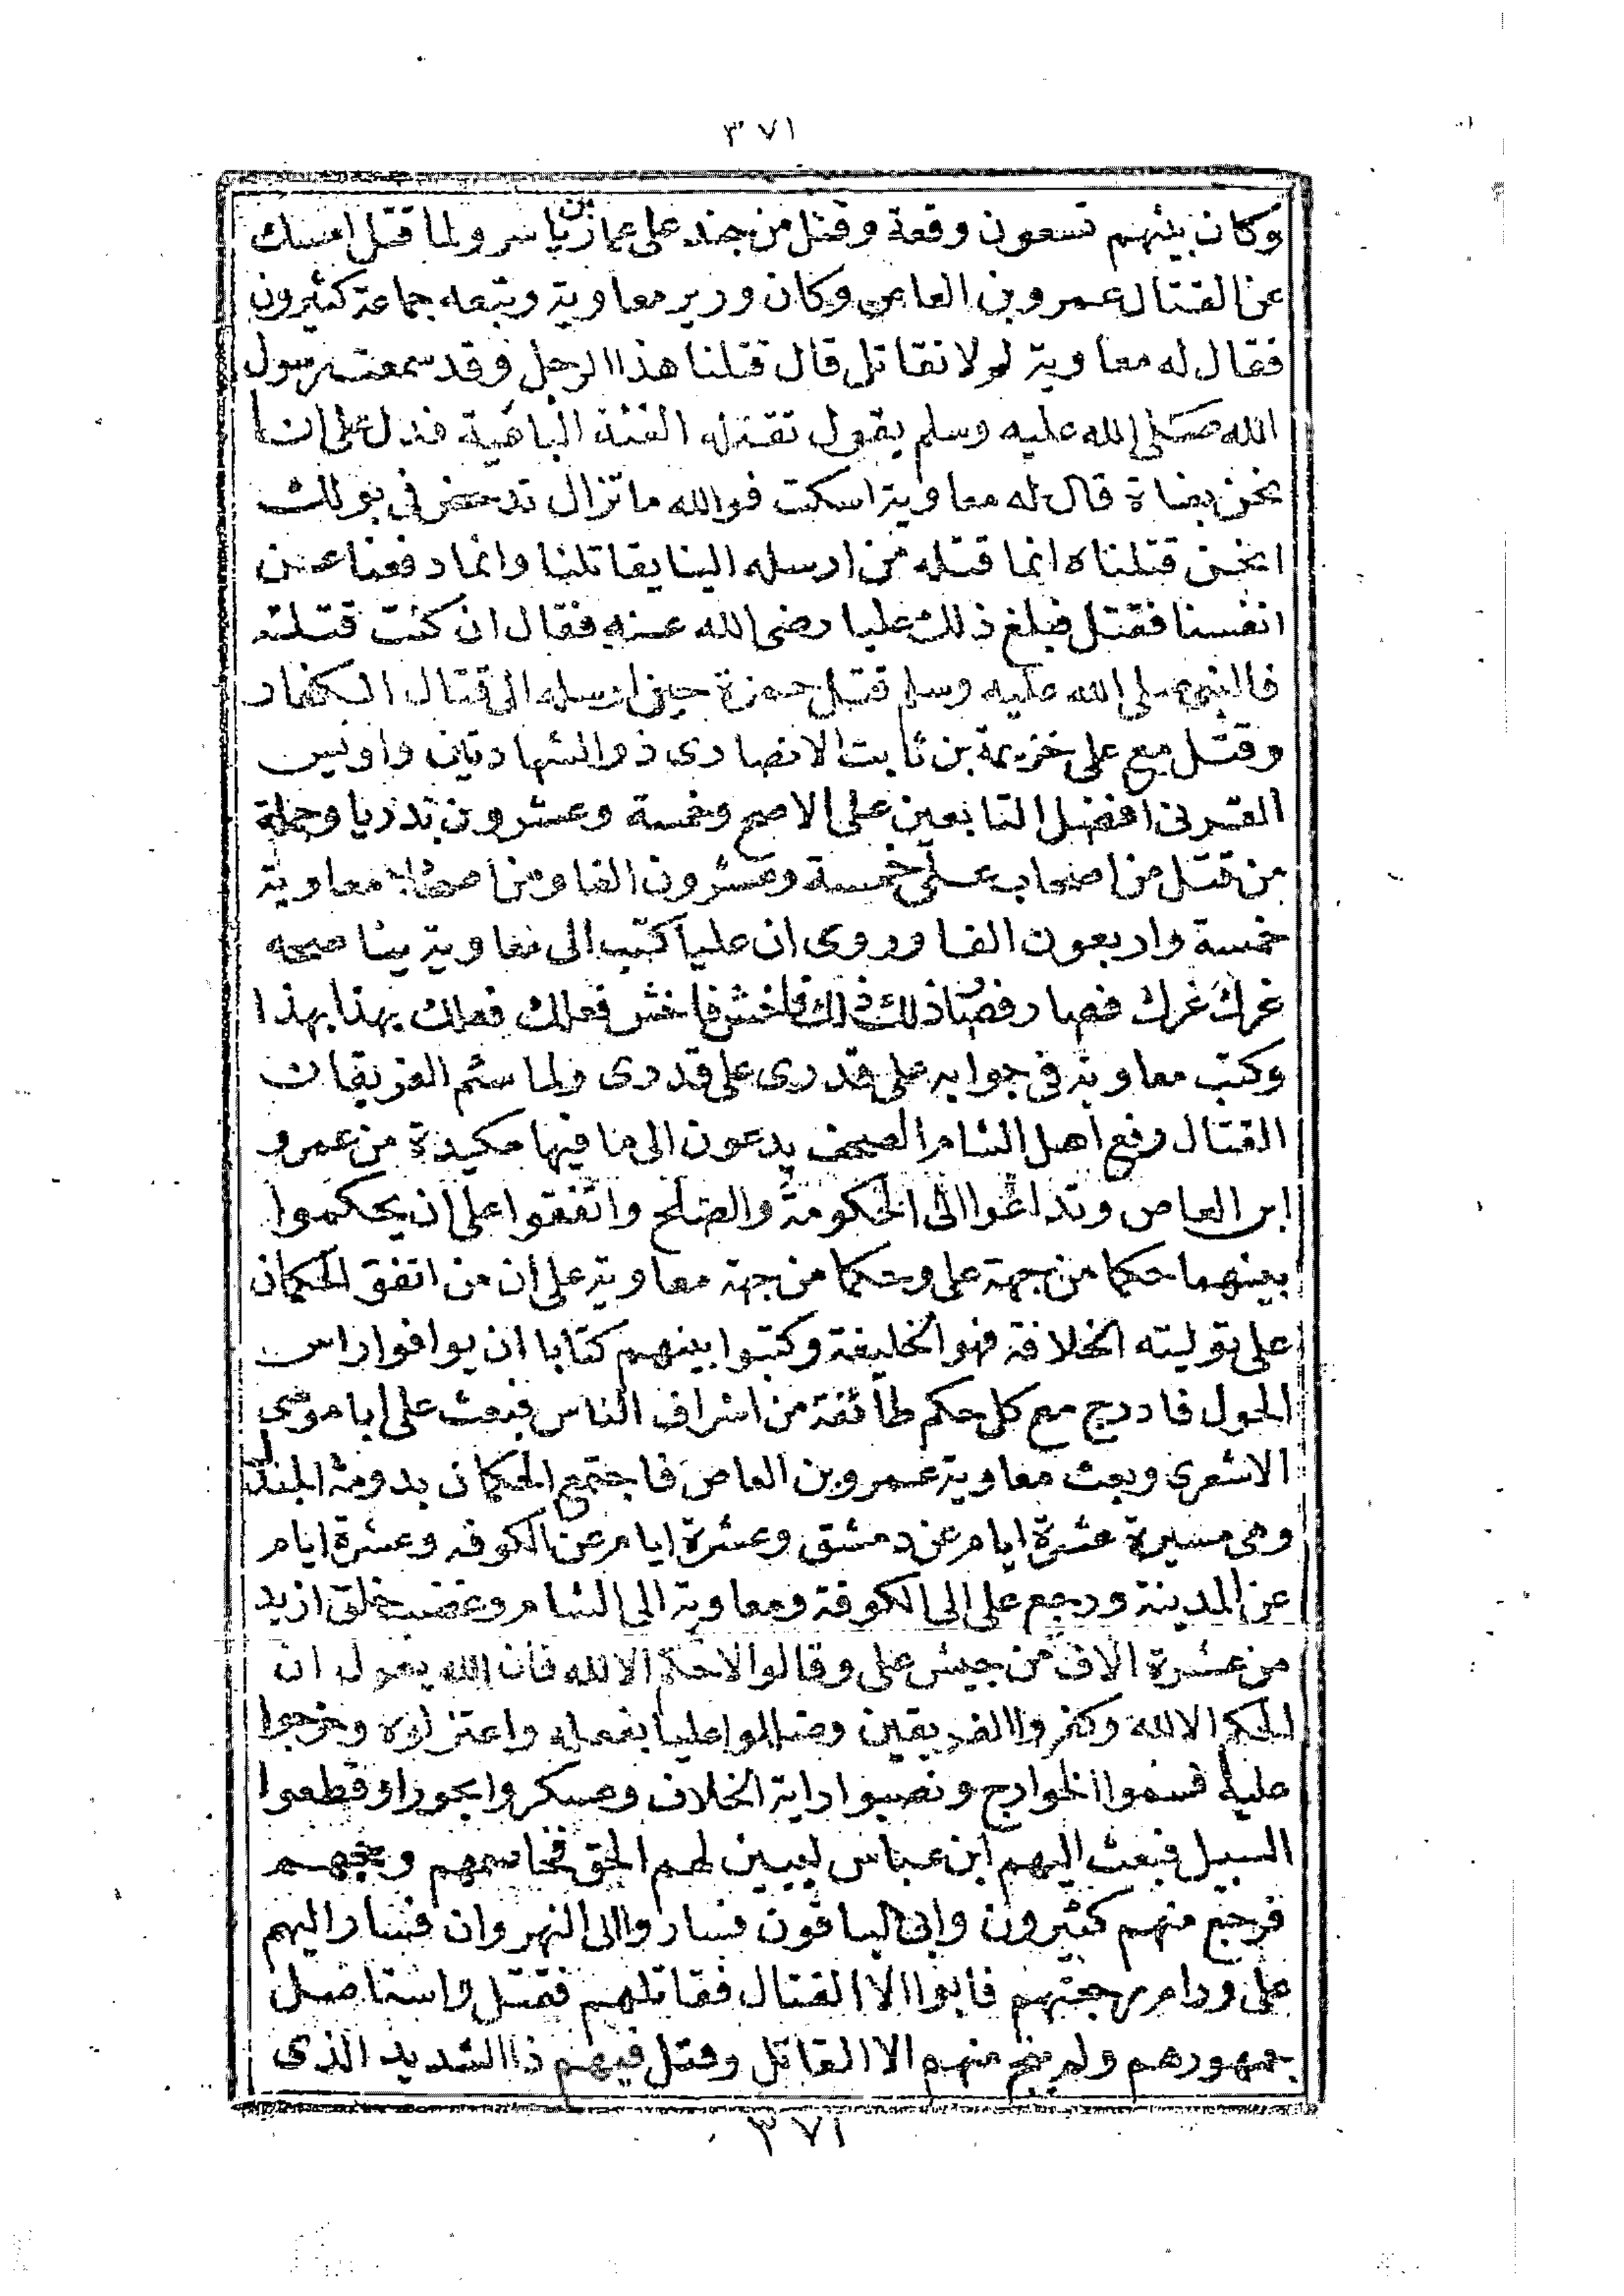 ٣٧١
وكان بينهم تسعون وقعة وقتل من جند على عمار بن ياسر ولما قتل امسك
عن القتال عمرو بن العاص وكان وزير معاوية وتبعه جماعة كثيرون
فقال له معاوية لم لا تقاتل قال قتلنا هذا الرجل وقد سمعت رسول
الله صلى الله عليه وسلم يقول تقتله الفئة الباغية فدل على انا
نحن بغاة قال له معاوية اسكت فوالله ما تزال تدحض في بولك
انحن قتلناه انما قتله من ارسله الينا يقاتلنا وانما دفعنا عن
انفسنا فقتل فبلغ ذلك عليا رضى الله عنه فقال ان كنت قتلته
فالنبي صلى الله عليه وسلم قتل حمزة حين ارسله الى قتال الكفار
وقتل مع على خزيمة بن ثابت الانصارى ذو الشهادتين واويس
القرنى افضل التابعين على الاصح وخمسة وعشرون بدريا وجملة
من قتل من اصحاب على خمسة وعشرون الفا ومن اصحاب معاوية
خمسة واربعون الفا وروى ان عليا كتب الى معاوية
غرك عزك فصار قصار ذلك ذلك فاخش فاخش فعلك فعلك بهذا بهذا
وكتب معاوية في جوابه على قدرى على قدرى ولما سئم الفريقان
القتال رفع اهل الشام المصحف يدعون الى ما فيها مكيدة من عمرو
ابن العاص وتداعوا الى الحكومة والصلح واتفقوا على ان يحكموا
بينهما حكما من جهة على وحكما من جهة معاوية على ان من اتفق الحكمان
على توليته الخلافة فهو الخليفة وكتبوا بينهم كتابا ان يوافوا راس
الحول فادرج مع كل حكم طائفة من اشراف الناس فبعث على ابا موسى
الاشعرى وبعث معاوية عمرو بن العاص فاجتمع الحكمان بدومة الجندل
وهى مسيرة عشرة ايام عن دمشق وعشرة ايام عن الكوفة وعشرة ايام
عن المدينة ورجع على الى الكوفة ومعاوية الى الشام وغضب خلق ازيد
من عشرة الاف من جيش على وقالوا لا حكم الا لله فان الله يقول ان
الحكم الا لله وكفروا الفريقين وضللوا عليا بفعله واعتزلوه وخرجوا
عليه فسموا الخوارج ونصبوا راية الخلاف وعسكروا بحورا وقطعوا
السبيل فبعث اليهم ابن عباس ليبين لهم الحق فخاصمهم وحجهم
فرجع منهم كثيرون وابى الباقون فساروا الى النهروان فسار اليهم
على ورام رجعتهم فابوا الا القتال فقاتلهم فقتل واستاصل
جمهورهم ولم ينج منهم الا القائل وقتل فيهم ذا الشديد الذى
٣٧١